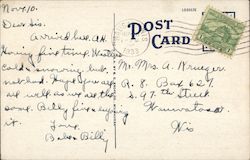 Nov. 10.
Dear Sis.
Arrived here O.K.
Having fine time. Weather
cold & snowing, but
not bad. Hope you are
all well as we are the
same. Billy fine & enjoying
it. Love
Babe & Billy
POST
CARD
1933
Mr. Mrs. A. Krueger
R. 8. Box 627
S. 97 th Street
Wauwatosa
Wis